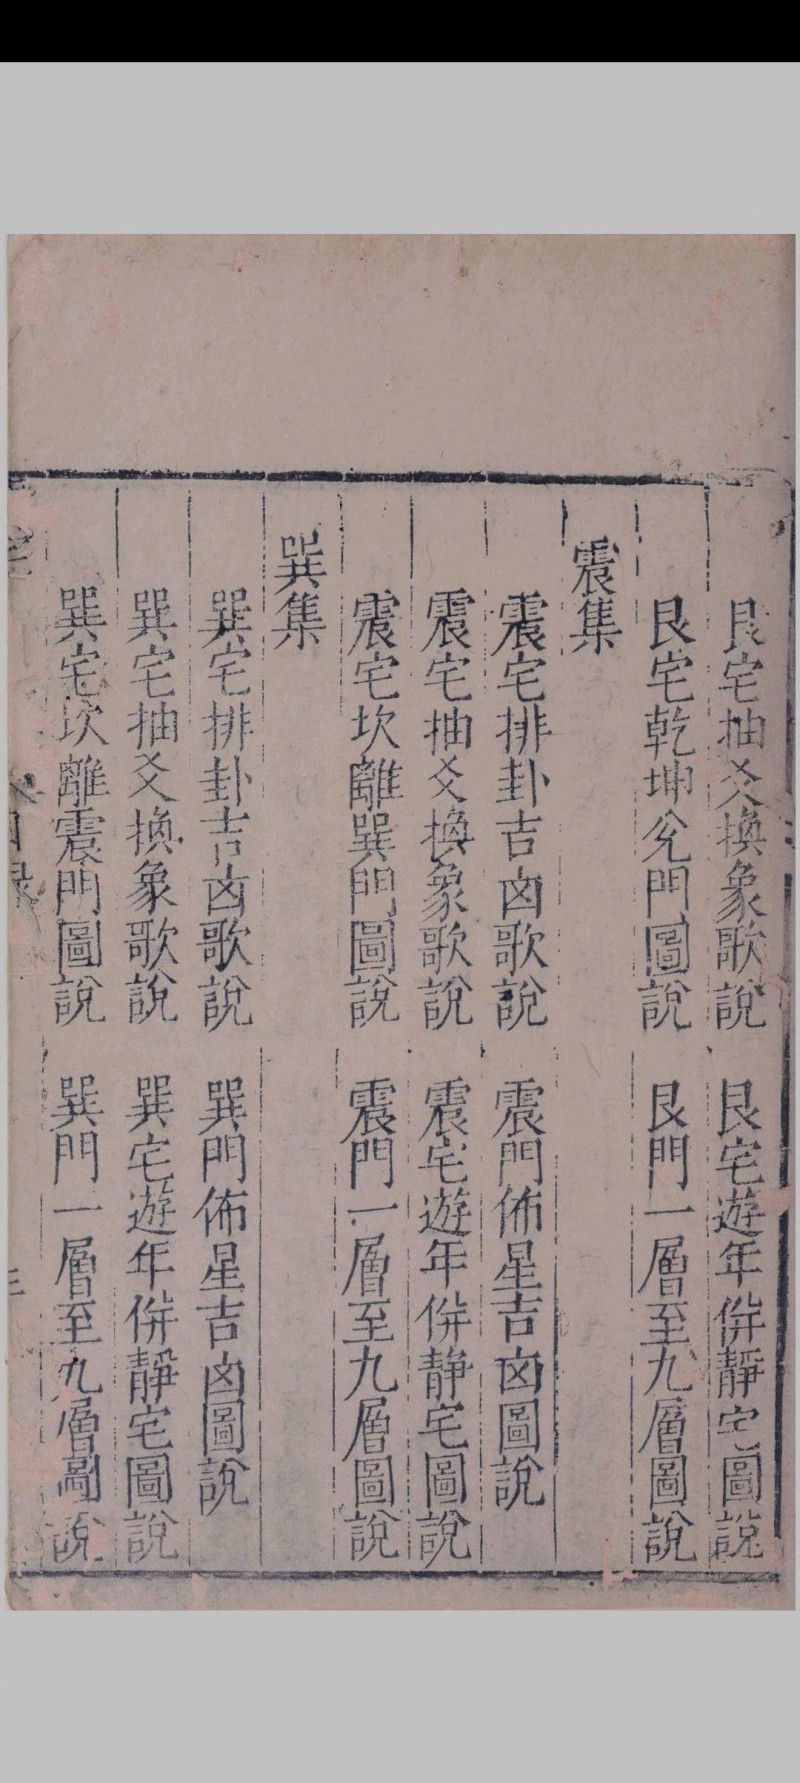 艮宅抽爻換象歌說　艮宅遊年併靜宅圖說
艮宅乾坤兌門圖說　艮門一層至九層圖說
震集
震宅排卦吉凶歌說　震門佈星吉凶圖說
震宅抽爻換象歌說　震宅遊年併静宅圖說
震宅坎離巽門圖說　震門一層至九層圖說
巽集
巽宅排卦吉凶歌說　巽門佈星吉凶圖說
巽宅抽爻換象歌說　巽宅遊年併靜宅圖說
巽宅坎離震門圖說　巽門一層至九層圖說
目录